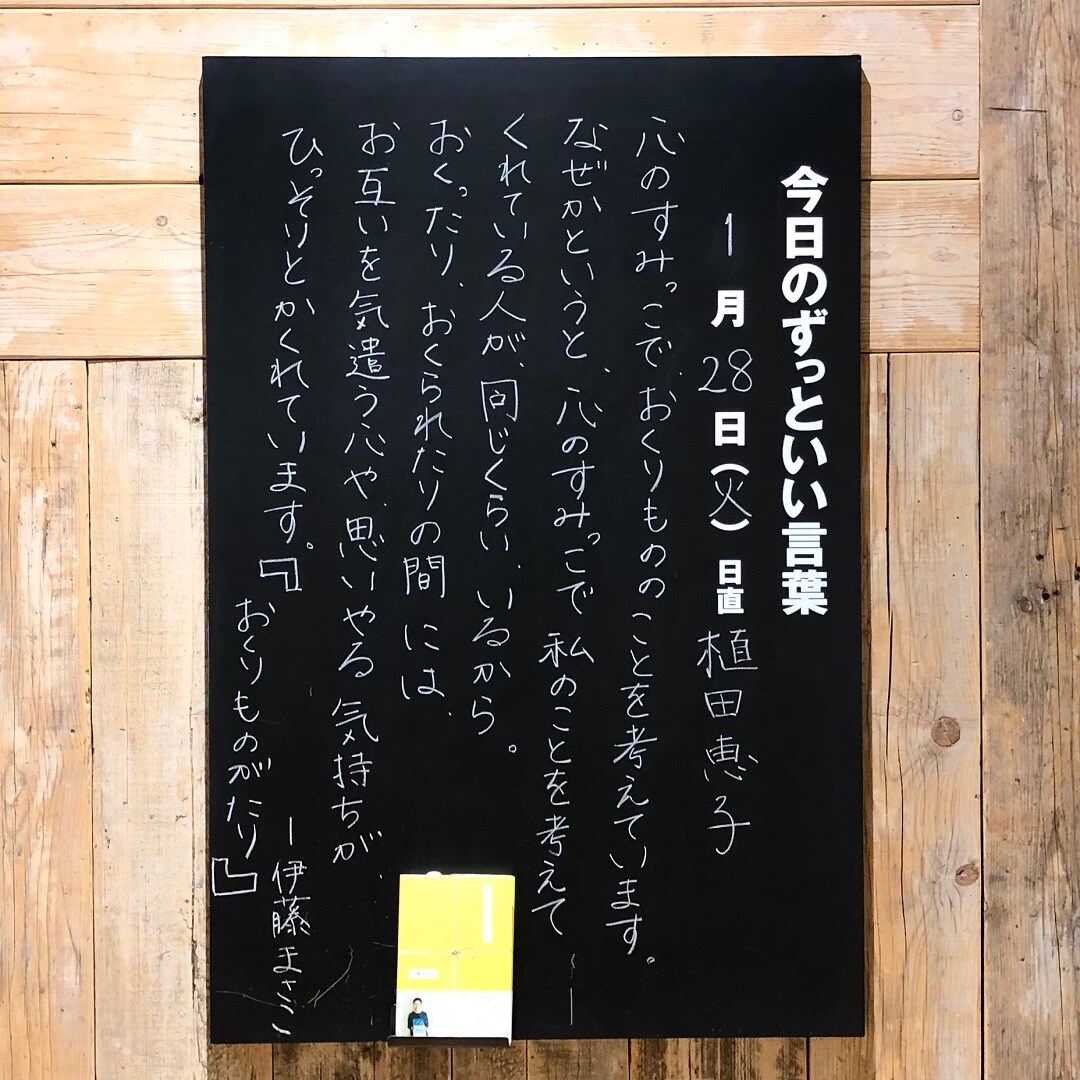 今日のずっといい言葉
1月28日(火) 日直 植田恵子
心のすみっこで、おくりもののことを考えています。
なぜかというと、心のすみっこで私のことを考えて
くれている人が、同じくらい、いるから。
おくったり、おくられたりの間には、
お互いを気遣う心や、思いやる気持ちが
ひっそりとかくれています。
―伊藤まさこ
『おくりものがたり』